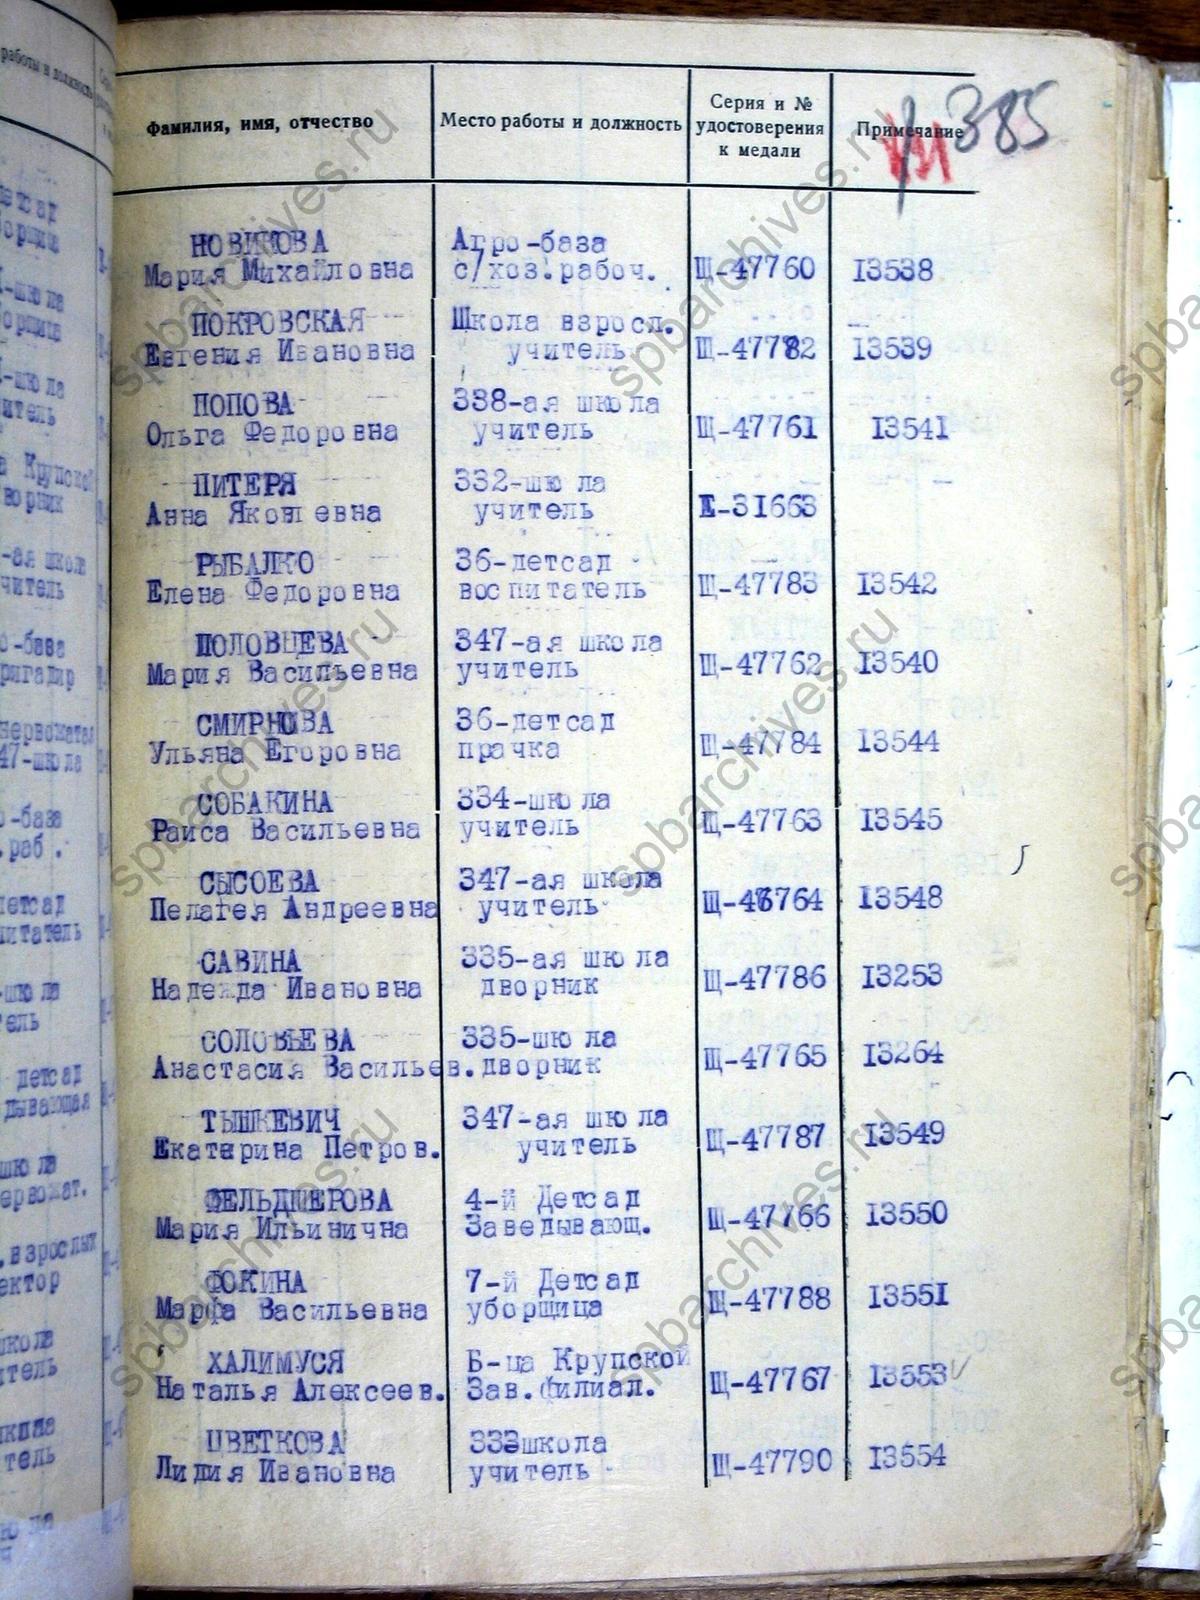 385
Фамилия, имя, отчество
Место работы и должность
Серия и № удостоверения к медали
Примечание
НОВИКОВА Агро-база
Мария Михайловна с/хоз.рабоч. Щ-47760 13538
ПОКРОВСКАЯ Школа взросл.
Евгения Ивановна учитель Щ-47782 13539
ПОПОВА 338-ая школа
Ольга Федоровна учитель Щ-47761 13541
ПИТЕРЯ 332-школа
Анна Яковлевна учитель Е-31663
РЫБАЛКО 36-детсад
Елена Федоровна воспитатель Щ-47783 13542
ПОЛОВЦЕВА 347-ая школа
Мария Васильевна учитель Щ-47762 13540
СМИРНОВА 36-детсад
Ульяна Егоровна прачка Щ-47784 13544
СОБАКИНА 334-школа
Раиса Васильевна учитель Щ-47763 13545
СЫСОЕВА 347-ая школа
Пелагея Андреевна учитель Щ-47764 13548
САВИНА 335-ая школа
Надежда Ивановна дворник Щ-47786 13253
СОЛОВЬЕВА 335-школа
Анастасия Васильев. дворник Щ-47765 13264
ТЫШКЕВИЧ 347-ая школа
Екатерина Петров. учитель Щ-47787 13549
ФЕЛЬДШЕРОВА 4-й Детсад
Мария Ильинична Заведывающ. Щ-47766 13550
ФОКИНА 7-й Детсад
Марфа Васильевна уборщица Щ-47788 13551
ХАЛИМУСЯ Б-ца Крупской
Наталья Алексеев. Зав.филиал. Щ-47767 13553
ЦВЕТКОВА 333школа
Лидия Ивановна учитель Щ-47790 13554
spbarchives.ru